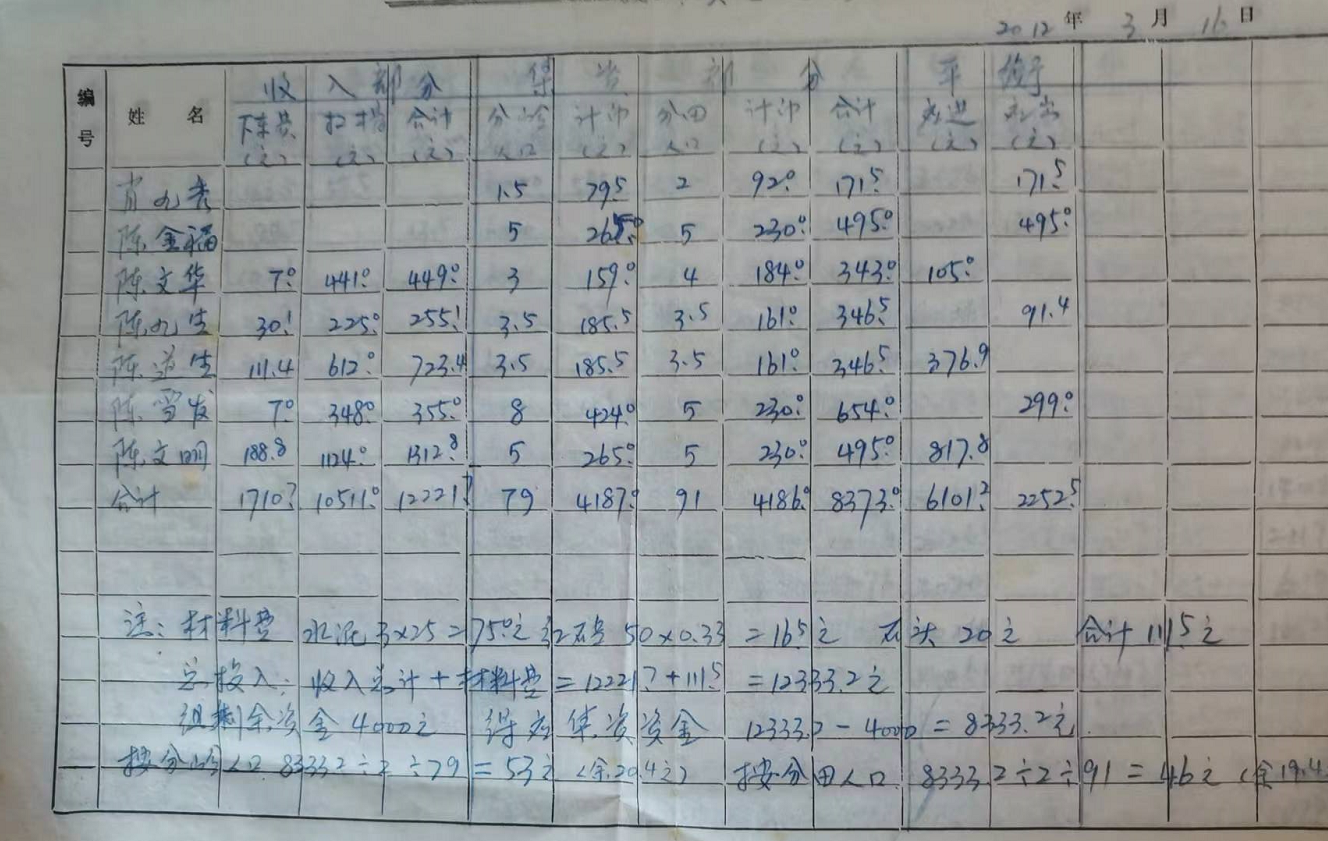 2012年 3月 16日
编号 姓名 收入部分 筹资部分 平衡
(元) 扫描(元) 合计(元) 人口 计冲(元) 分田人口 计冲(元) 合计(元) 应进(元) 应出(元)
肖九秀 1.5 79.5 2 92.0 171.5 171.5
陈金福 5 265.0 5 230.0 495.0 495.0
陈文华 7.0 441.0 449.0 3 159.0 4 184.0 343.0 105.0
陈九生 30.1 225.0 255.1 3.5 185.5 3.5 161.0 346.5 91.4
陈道生 111.4 612.0 723.4 3.5 185.5 3.5 161.0 346.5 376.9
陈雪发 7.0 348.0 355.0 8 424.0 5 230.0 654.0 299.0
陈文明 188.8 1124.0 1312.8 5 265.0 5 230.0 495.0 817.8
合计 1710.7 10511.0 12221.7 79 4187.0 91 4186.0 8373.0 6101.2 2252.5
注：材料费 水泥 3×25=75.0元 50×0.33=16.5元 石头 20元 合计 111.5元
总投入：收入总计+材料费=12221.7+111.5=12333.2元
组剩余资金4000元 得应筹资资金 12333.2-4000=8333.2元
按分 人口 8333.2÷2÷79=53元 (余20.4元) 按分田人口 8333.2÷2÷91=46元 (余19.4